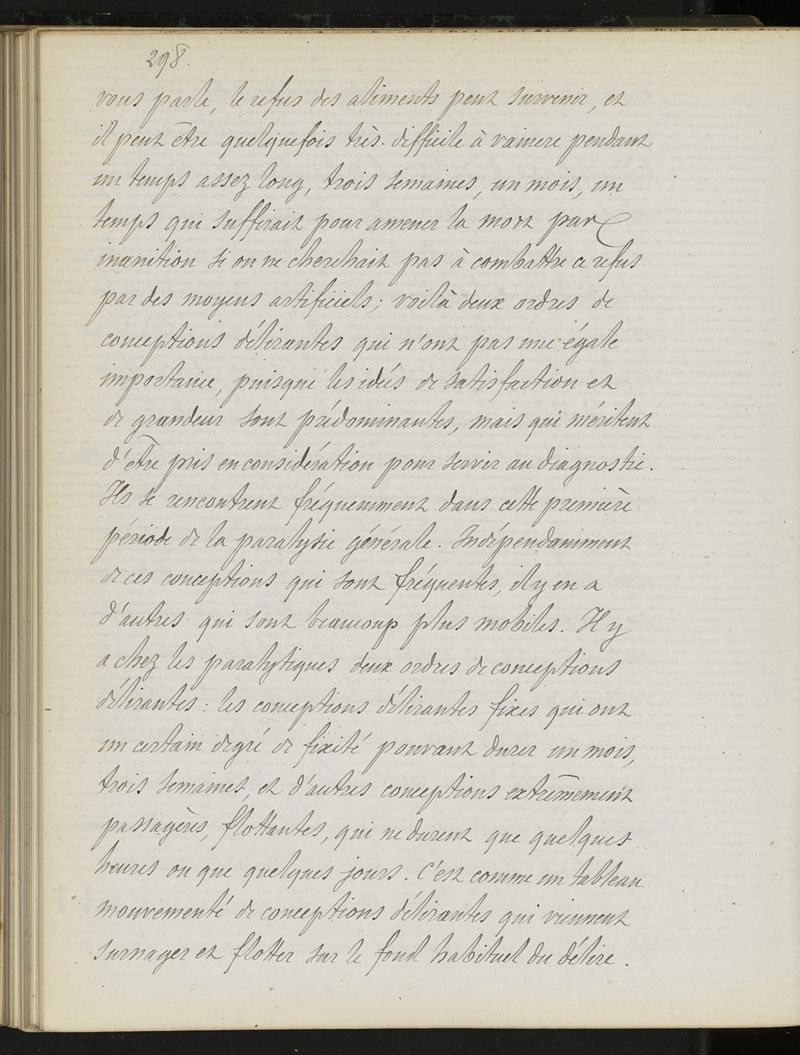 298.
vous parle, le refus des aliments peut survenir, et
il peut être quelquefois très-difficile à vaincre pendant
un temps assez long, trois semaines, un mois, un
temps qui suffirait pour amener la mort par
inanition si on ne cherchait pas à combattre ce refus
par des moyens artificiels; voilà deux ordres de
conceptions délirantes qui n'ont pas une égale
importance, puisque les idées de satisfaction et
de grandeur sont prédominantes, mais qui méritent
d'être pris en considération pour servir au diagnostic.
Ils se rencontrent fréquemment dans cette première
période de la paralysie générale. Indépendamment
de ces conceptions qui sont fréquentes, il y en a
d'autres qui sont beaucoup plus mobiles. Il y
a chez les paralytiques deux ordres de conceptions
délirantes: les conceptions délirantes fixes qui ont
un certain degré de fixité pouvant durer un mois,
trois semaines, et d'autres conceptions extrêmement
passagères, flottantes, qui ne durent que quelques
heures ou que quelques jours. C'est comme un tableau
mouvementé de conceptions délirantes qui viennent
surnager et flotter sur le fond habituel du délire.